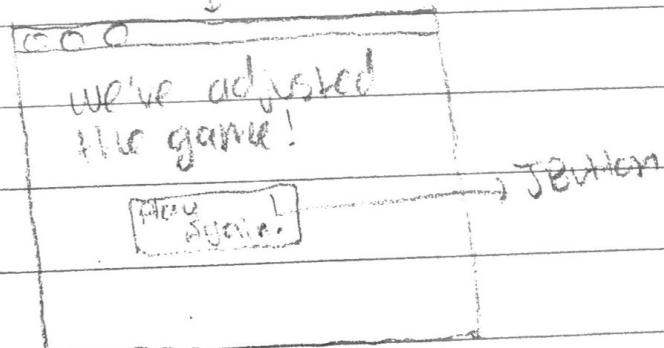 we've adjusted
the game!
Play
Again!
JButton